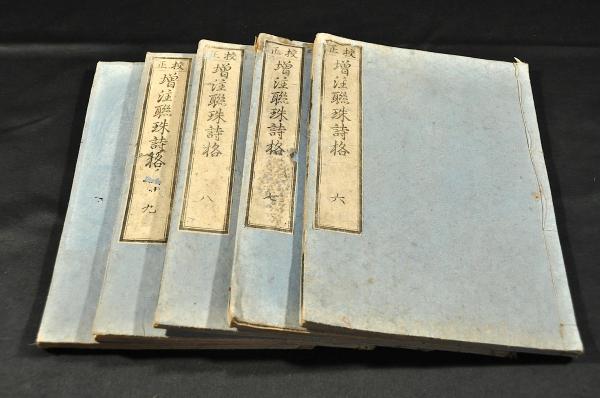 校正
增注聯珠詩格
六
校正
增注聯珠詩格
七
校正
增注聯珠詩格
八
校正
增注聯珠詩格
九